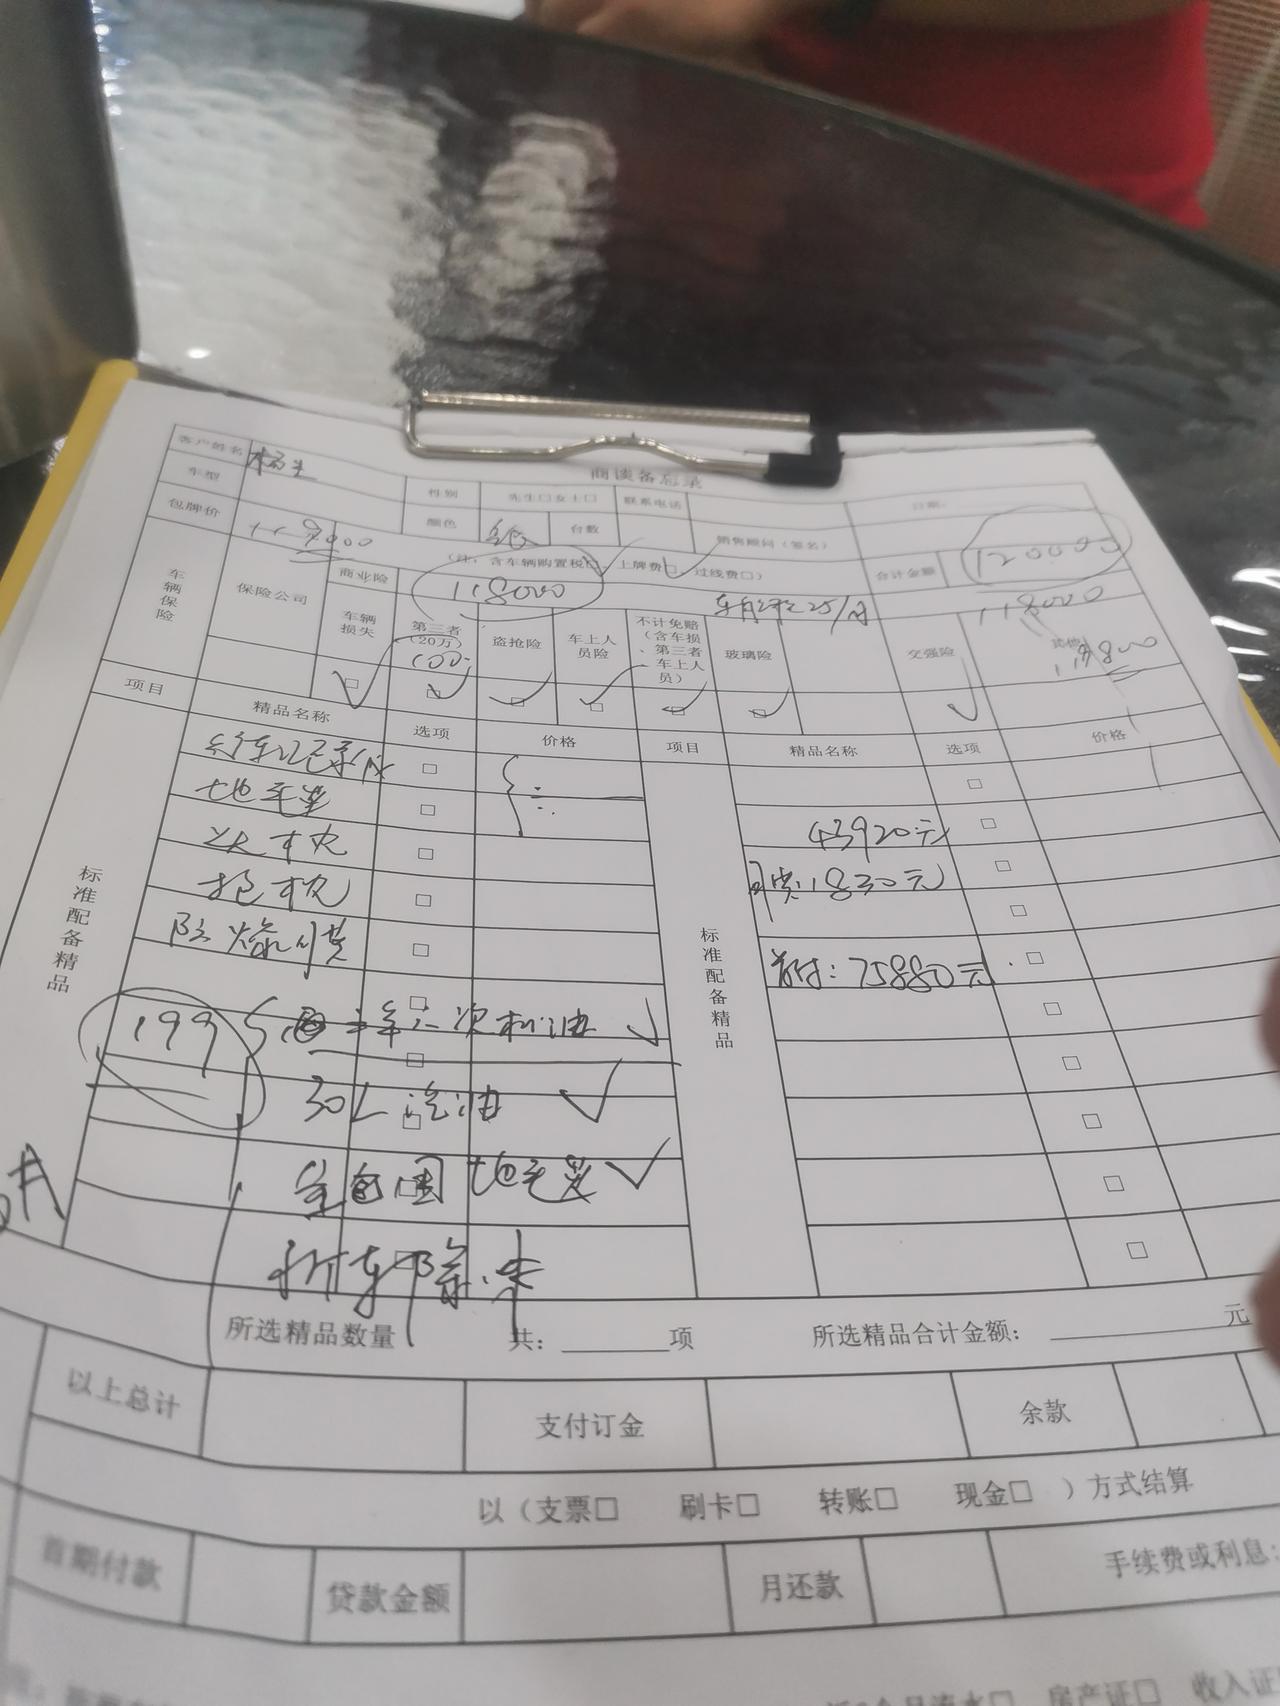 商谈备忘录
客户姓名 杨生 性别 先生□女士□ 联系电话 日期:
车型 颜色 台数 销售顾问（签名）
包牌价 119000 （注：含车辆购置税□，上牌费□，过线费□） 合计金额 120000
车辆保险 保险公司 商业险 118000 25/月 118000
车辆损失 第三者（20万） 100 盗抢险 车上人员险 不计免赔（含车损、第三者车上人员） 玻璃险 交强险 其他
□ □ □ □ □ □
项目 精品名称 选项 价格 项目 精品名称 选项 价格
标准配备精品 行车记录仪 □ 标准配备精品 □
地毛毯 □ 43920元 □
头枕 □ □
抱枕 □ 月供:1830元 □
防爆膜 □ 首付:75880元 □
199 三年六次机油 □ □
30L汽油 □ □
全包围地毛毯 □
新车除味 □
所选精品数量 共：______项 所选精品合计金额：________元
以上总计 支付订金 余款
以（支票□ 刷卡□ 转账□ 现金□ ）方式结算
首期付款 贷款金额 月还款 手续费或利息:
房产证□ 收入证